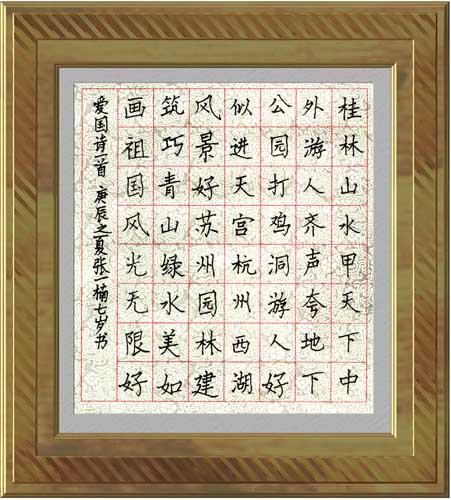 桂林山水甲天下中
外游人齐声夸地下
公园打鸡洞游人好
似进天宫杭州西湖
风景好苏州园林建
筑巧青山绿水美如
画祖国风光无限好
爱国诗一首 庚辰之夏张一楠七岁书